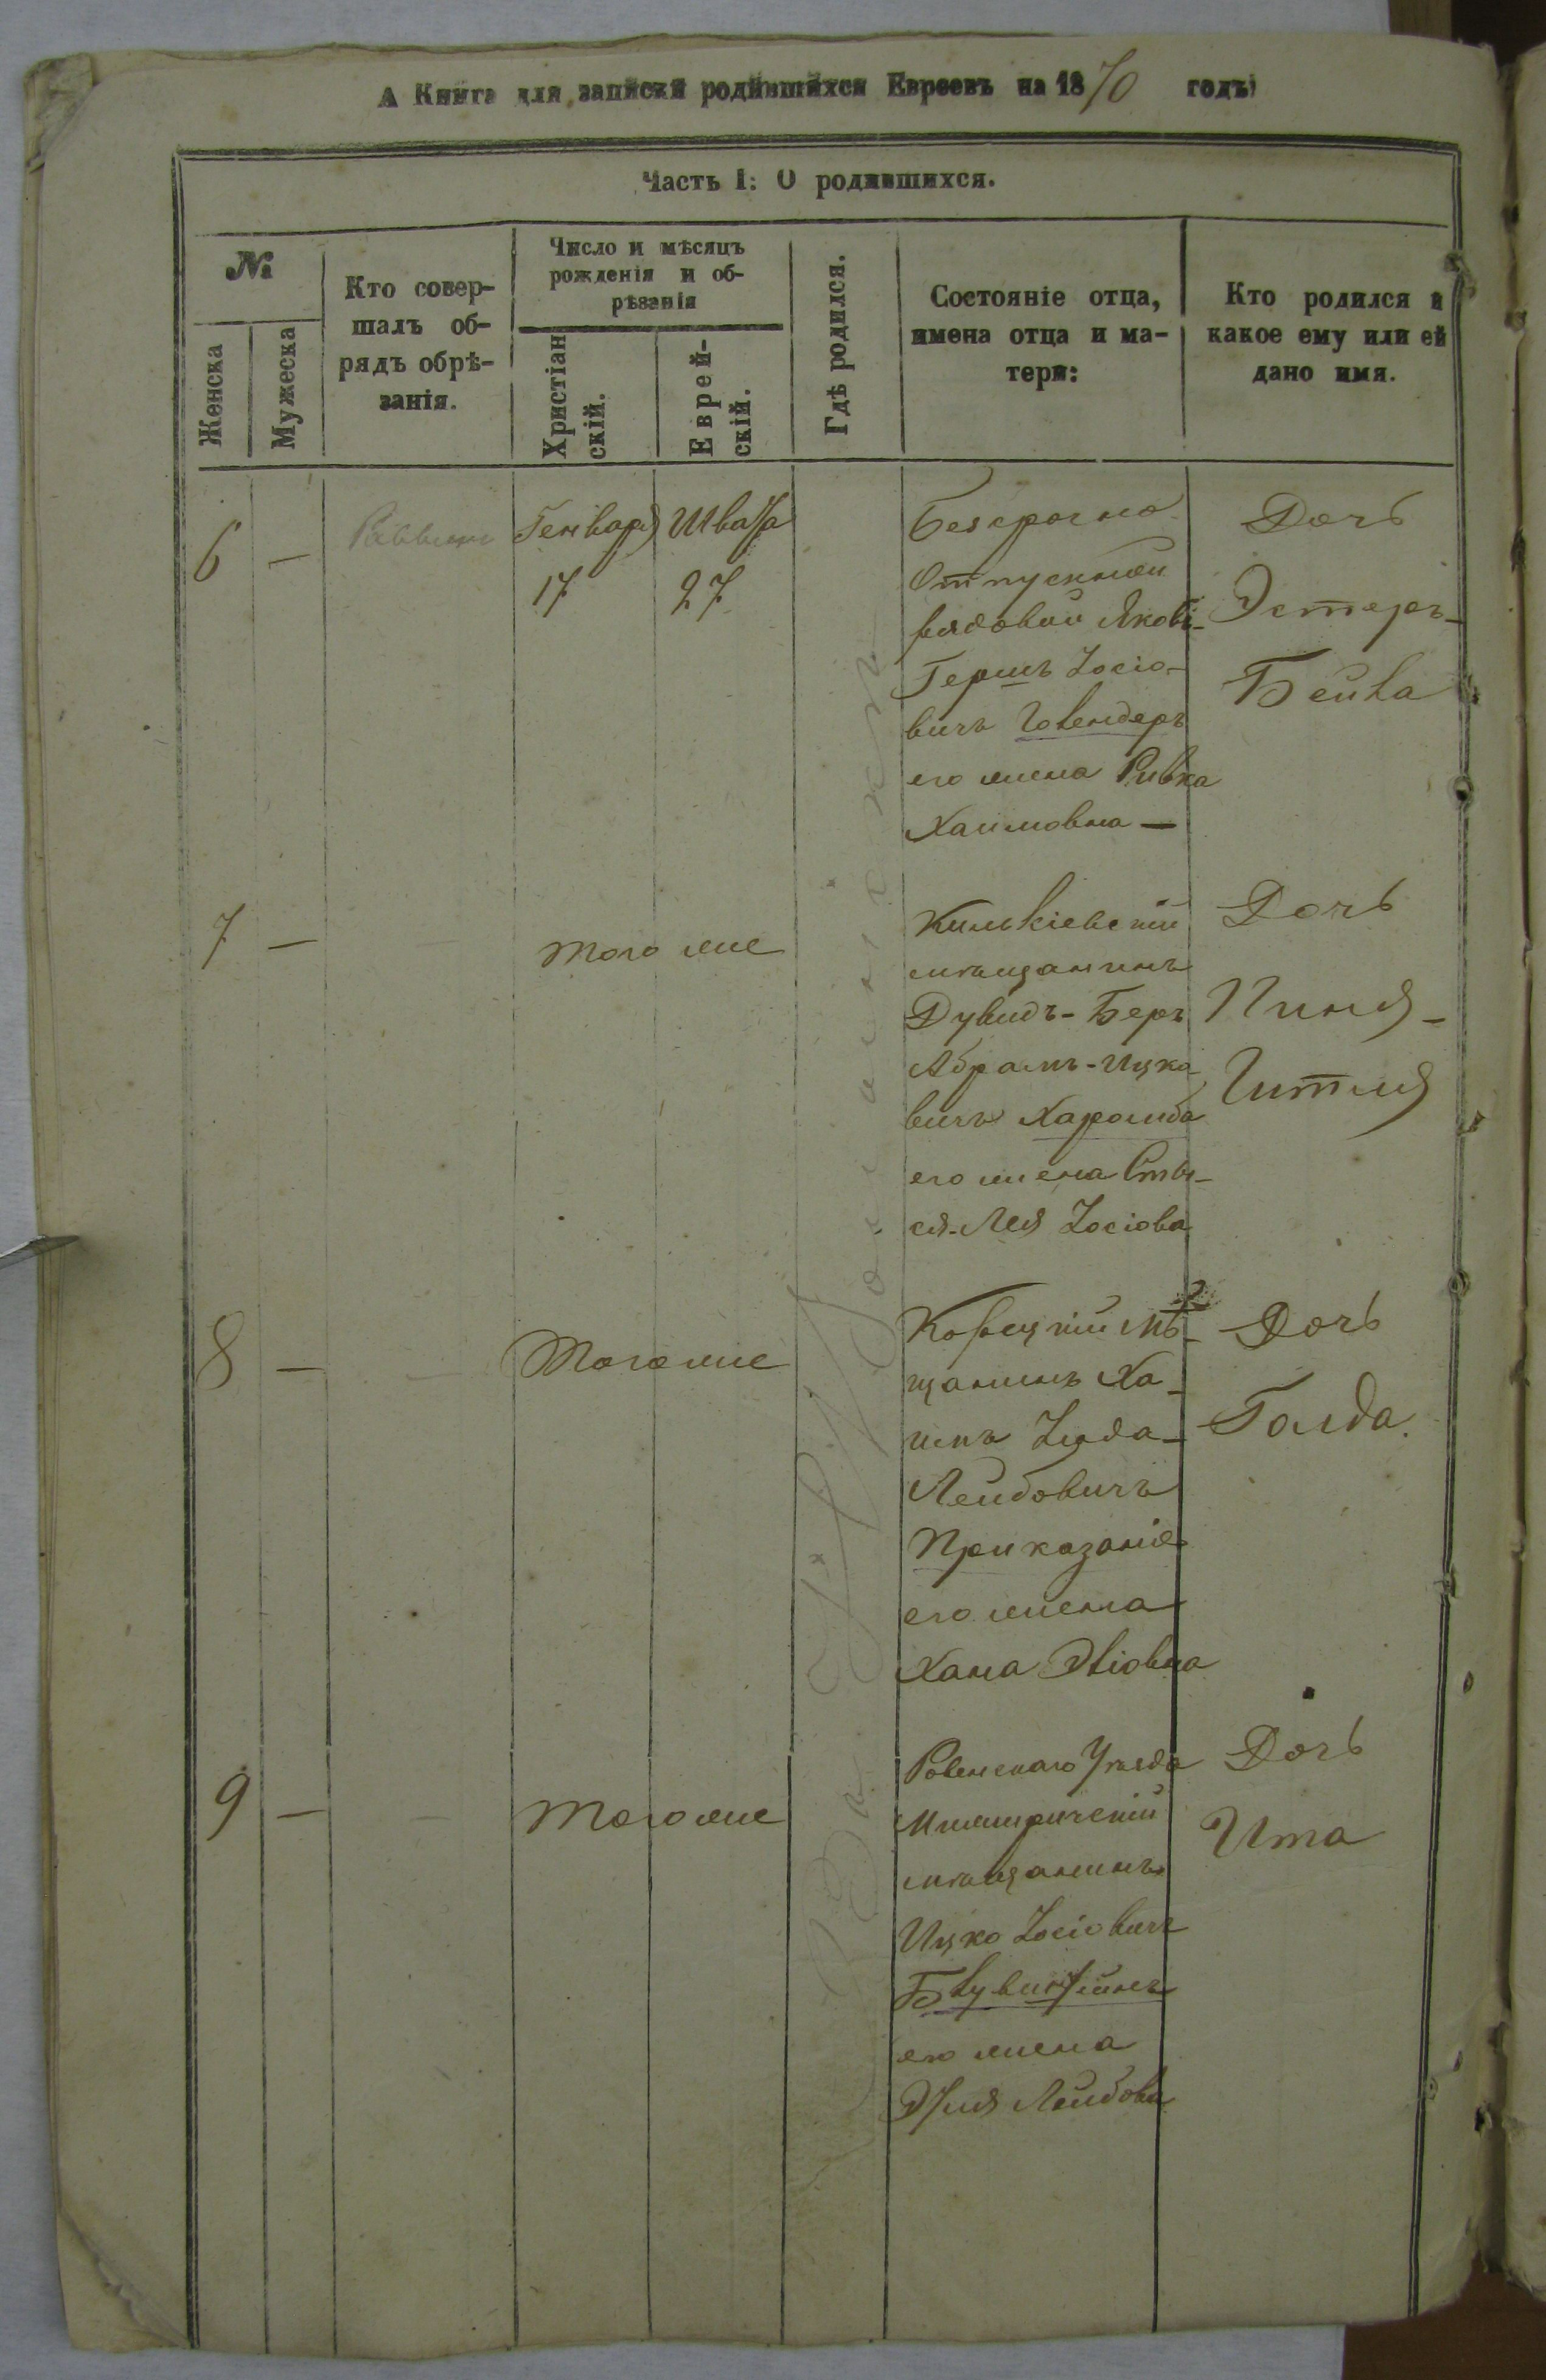 А Книга для записки родившихся Евреевъ на 1870 годъ
Часть I: О родившихся.
№
Женска
Мужеска
Кто совер-
шалъ об-
рядъ обрѣ-
занія.
Число и мѣсяцъ
рожденія и об-
рѣзанія
Христіан
скій.
Еврей-
скій.
Гдѣ родился.
Состояніе отца,
имена отца и ма-
тери:
Кто родился и
какое ему или ей
дано имя.
6 —
Генваря
17
Швата
27
Безсрочно
Отпускной
рядовой Яковъ-
Гершъ Іосіо-
вичъ
его жена Ривка
Хаимовна —
Дочь
Эстеръ-
Бейла
7 — —
того же
мѣщанинъ
Дувидъ-Беръ
Абрамъ-Ицко
вичъ
его жена
ся-Лея Іосіова
Дочь
Пиня-
Гитля
8 — —
Того же
Корецкій мѣ-
щанинъ Ха-
имъ Іуда-
Лейбовичъ
Приказаніе
его жена
Хана
Дочь
Голда.
9 — —
Того же
Ровенскаго Уѣзда
мѣщанинъ
Ицко Іосіовичъ
его жена
Лейбова
Дочь
Ита